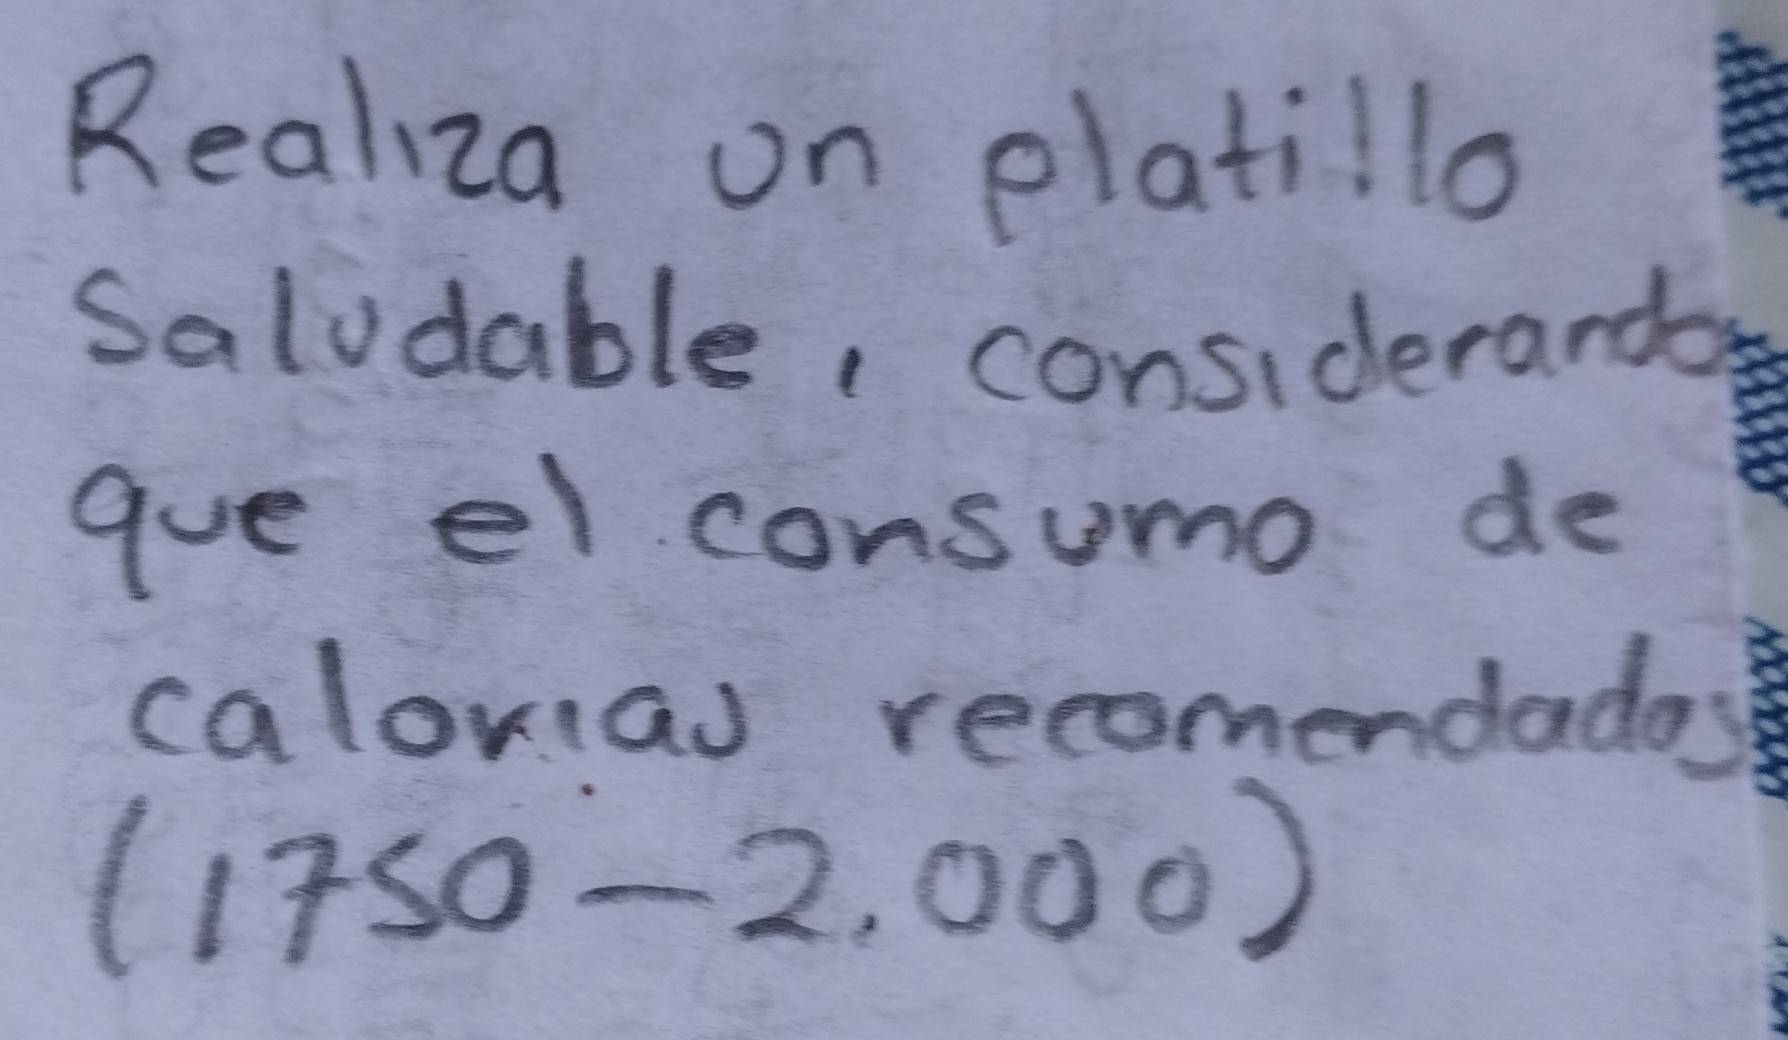 Realiza un platillo
Saludable, considerando
que el consumo de
calorias recomendados
(1750-2.000)